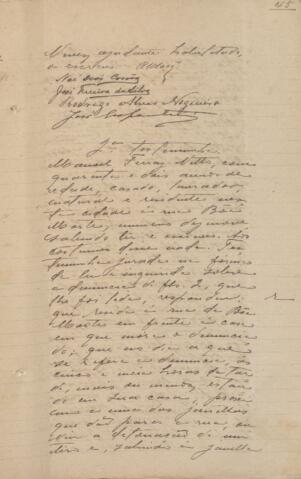 45
ajudante habilitado,
o escrevi
José Ferreira da Silva
Rodrigo Alves Nogueira
José
2ª testemunha
Manoel Ferraz Netto, com
quarenta e dois annos de
edade, casado, lavrador,
natural e residente nes
ta cidade á rua Bôa
Morte, numero dezenove
sabendo ler e escrever. Aos
costumes disse nada. Tes
temunha jurada na forma
da lei e inquirida sobre
a denuncia de fls. 2, que
lhe foi lida, respondeu:
que reside á rua da Bôa
Morte em frente á casa
em que mora o denuncia
do; que no dia a que
se refere a denuncia, ás
cinco e meia horas da tar
de, mais ou menos, estan
do em sua casa, proxi
mo a uma das janellas
que dão para a rua, ou
viu a detonação de um
tiro e, sahindo á janella